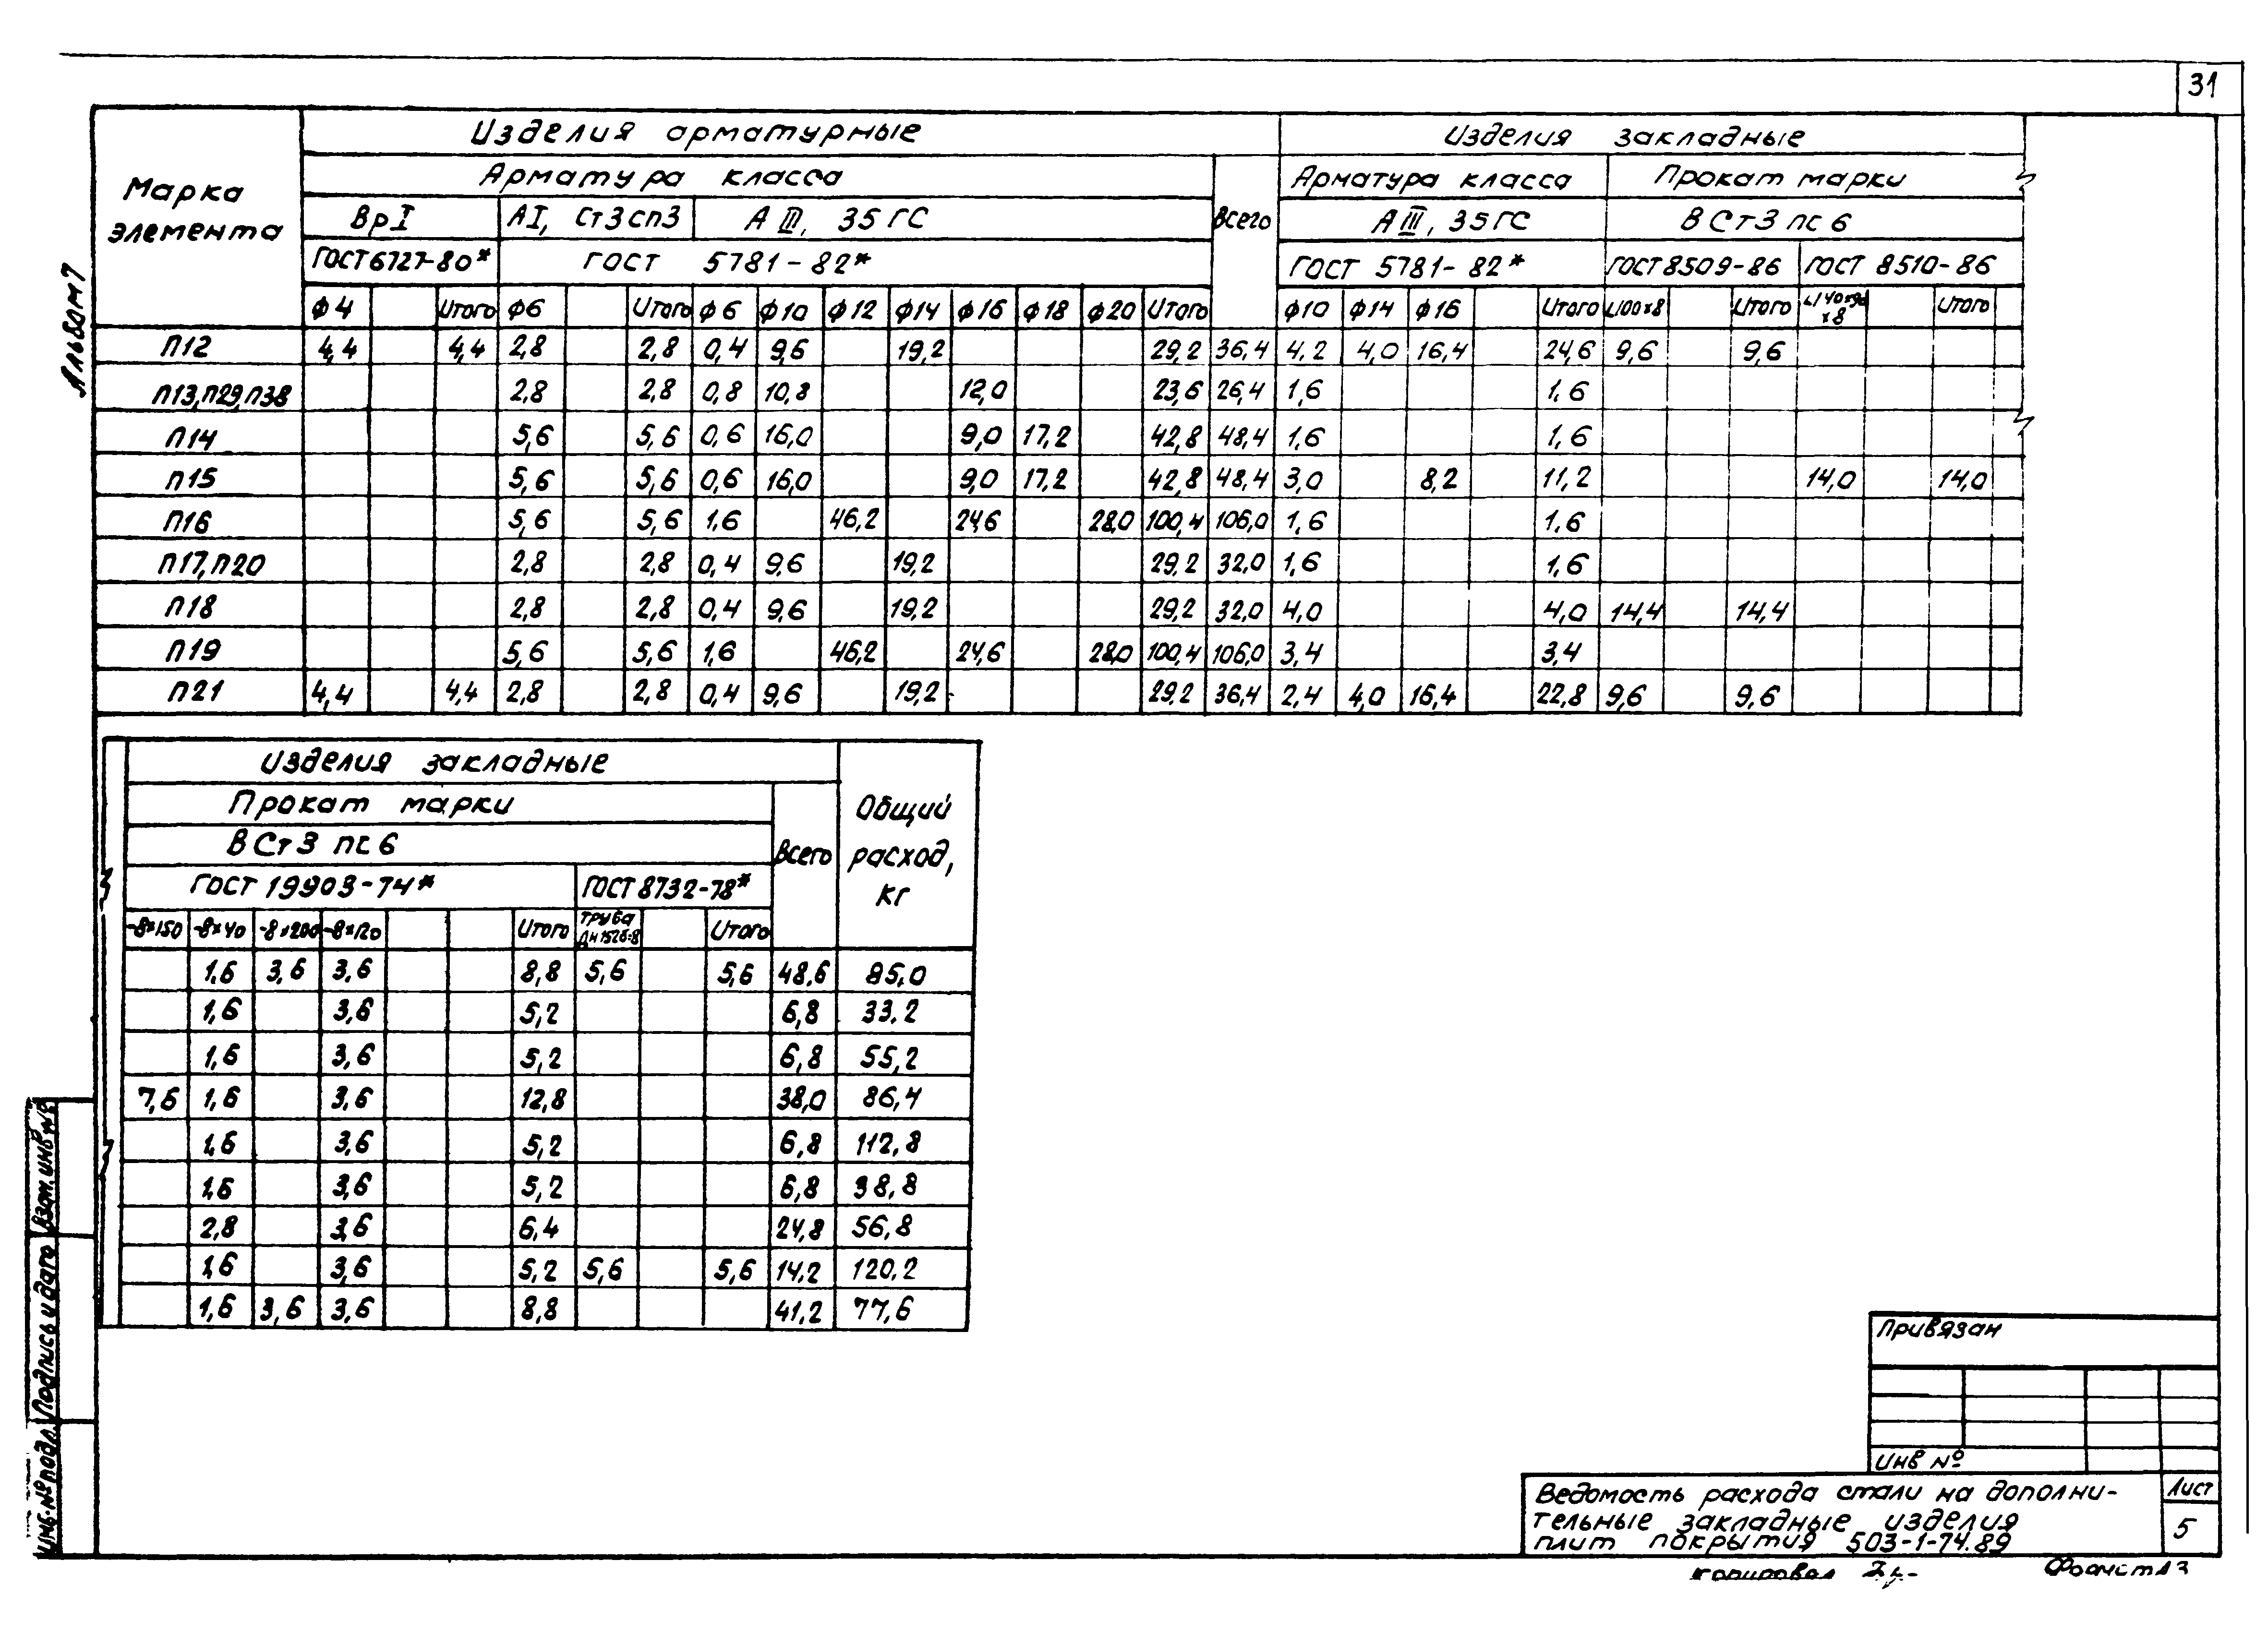 31
Альбом 7
Марка элемента | Изделия арматурные | Изделия закладные
Арматура класса | Всего | Арматура класса | Прокат марки
ВрI | АI, Ст3сп3 | АIII, 35ГС | АIII, 35ГС | ВСт3пс6
ГОСТ 6727-80* | ГОСТ 5781-82* | ГОСТ 5781-82* | ГОСТ 8509-86 | ГОСТ 8510-86
ф4 | Итого | ф6 | Итого | ф6 | ф10 | ф12 | ф14 | ф16 | ф18 | ф20 | Итого | ф10 | ф14 | ф16 | Итого | L100×8 | Итого | L140×90×8 | Итого
П12 | 4,4 | 4,4 | 2,8 | 2,8 | 0,4 | 9,6 | 19,2 | 29,2 | 36,4 | 4,2 | 4,0 | 16,4 | 24,6 | 9,6 | 9,6
П13,П29,П38 | 2,8 | 2,8 | 0,8 | 10,8 | 12,0 | 23,6 | 26,4 | 1,6 | 1,6
П14 | 5,6 | 5,6 | 0,6 | 16,0 | 9,0 | 17,2 | 42,8 | 48,4 | 1,6 | 1,6
П15 | 5,6 | 5,6 | 0,6 | 16,0 | 9,0 | 17,2 | 42,8 | 48,4 | 3,0 | 8,2 | 11,2 | 14,0 | 14,0
П16 | 5,6 | 5,6 | 1,6 | 46,2 | 24,6 | 28,0 | 100,4 | 106,0 | 1,6 | 1,6
П17,П20 | 2,8 | 2,8 | 0,4 | 9,6 | 19,2 | 29,2 | 32,0 | 1,6 | 1,6
П18 | 2,8 | 2,8 | 0,4 | 9,6 | 19,2 | 29,2 | 32,0 | 4,0 | 4,0 | 14,4 | 14,4
П19 | 5,6 | 5,6 | 1,6 | 46,2 | 24,6 | 28,0 | 100,4 | 106,0 | 3,4 | 3,4
П21 | 4,4 | 4,4 | 2,8 | 2,8 | 0,4 | 9,6 | 19,2 | 29,2 | 36,4 | 2,4 | 4,0 | 16,4 | 22,8 | 9,6 | 9,6
Изделия закладные | Общий расход, кг
Прокат марки | Всего
ВСт3пс6
ГОСТ 19903-74* | ГОСТ 8732-78*
-8×150 | -8×40 | -8×200 | -8×120 | Итого | труба Дн152б=8 | Итого
1,6 | 3,6 | 3,6 | 8,8 | 5,6 | 5,6 | 48,6 | 85,0
1,6 | 3,6 | 5,2 | 6,8 | 33,2
1,6 | 3,6 | 5,2 | 6,8 | 55,2
7,6 | 1,6 | 3,6 | 12,8 | 38,0 | 86,4
1,6 | 3,6 | 5,2 | 6,8 | 112,8
1,6 | 3,6 | 5,2 | 6,8 | 38,8
2,8 | 3,6 | 6,4 | 24,8 | 56,8
1,6 | 3,6 | 5,2 | 5,6 | 5,6 | 14,2 | 120,2
1,6 | 3,6 | 3,6 | 8,8 | 41,2 | 77,6
Взам. инв №
Подпись и дата
Инв. № подл.
Привязан
Инв №
Ведомость расхода стали на дополни-
тельные закладные изделия
плит покрытия 503-1-74.89
Лист
5
копировал
Формат А3